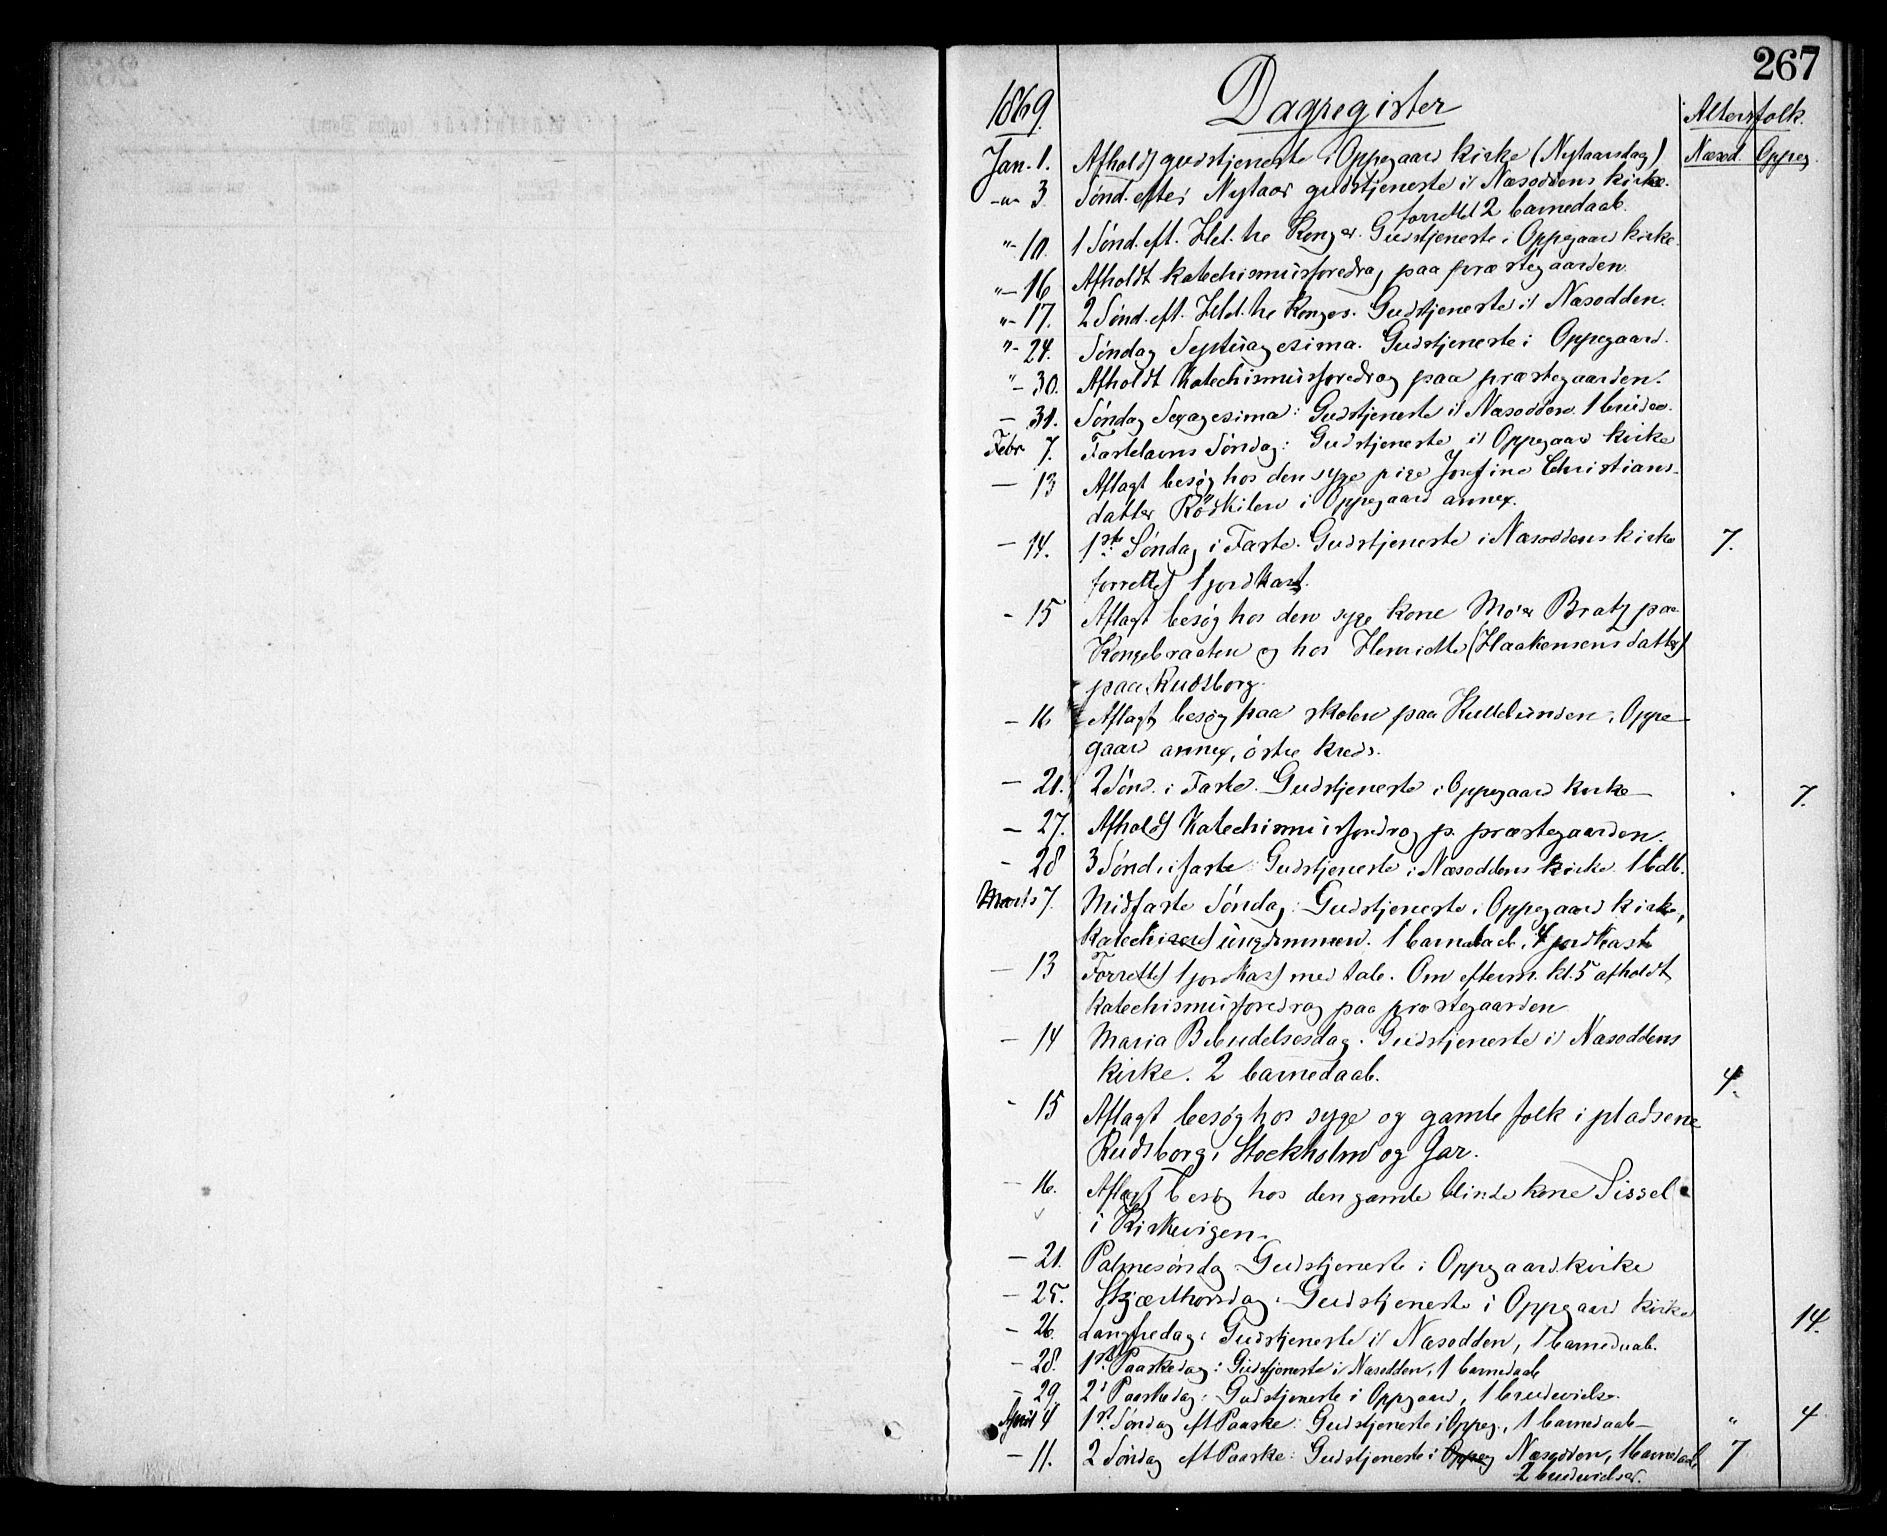 267
1869. Dagregister Altersfolk.
Næsod. Oppeg.
Jan. 1. Afholdt gudstjeneste i Oppegaard kirke (Nytaarsdag)
-"- 3 Sønd. efter Nytaar gudstjeneste i Næsoddens kirke.
forrettet 2 barnedaab.
"- 10. 1 Sønd. eft. Hel. tre Konger. Gudstjeneste i Oppegaard kirke.
"- 16 Afholdt katechismusforedrag paa præstegaarden.
"- 17. 2 Sønd. eft. Hel. tre Konger. Gudstjeneste i Næsodden.
"- 24. Søndag Septuagesima. Gudstjeneste i Oppegaard.
"- 30. Afholdt Katechismusforedrag paa præstegaarden.
- 31. Søndag Sexagesima: Gudstjeneste i Næsodden. 1
Febr 7. Fastelavns Søndag: Gudstjeneste i Oppegaard kirke
- 13 Aflagt besøg hos den syge pige Josefine Christians-
datter Rödkilen i Oppegaard annex.
- 14. 1ste Søndag i Faste. Gudstjeneste i Næsoddens kirke 7.
forrettet 1 jordkast.
- 15 Aflagt besøg hos den syge kone Bratz paa
Kongebraaten og hos Henriette (Haakensens datter)
paa Rudsborg.
- 16 Aflagt besøg paa skolen paa Kullebunden i Oppe-
gaard annex, östre kreds.
- 21. 2 Sønd. i Faste. Gudstjeneste i Oppegaard kirke - 7.
- 27. Afholdt Katechismusforedrag p. præstegaarden.
- 28 3 Sønd i faste: Gudstjeneste i Næsoddens kirke. 1 bdb.
Marts 7. Midfaste Søndag: Gudstjeneste i Oppegaard kirke,
katechiseret ungdommen. 1 barnedaab, 4 jordkast
- 13 Forrettet 1 jordkast med tale. Om efterm. kl. 5 afholdt
katechismusforedrag paa præstegaarden
- 14 Maria Bebudelsesdag. Gudstjeneste i Næsoddens
kirke. 2 barnedaab. 4.
- 15 Aflagt besøg hos syge og gamle folk i pladsene
Rudsborg, Stockholm og Jar.
- 16. Aflagt besøg hos den gamle blinde kone Sissel
i Kirkevigen.
- 21. Palmesøndag Gudstjeneste i Oppegaard kirke
- 25. Skjærthorsdag. Gudstjeneste i Oppegaard kirke 14.
- 26. Langfredag: Gudstjeneste i Næsodden, 1 barnedaab.
- 28. 1ste Paaskedag: Gudstjeneste i Næsodden, 1 barnedaab
- 29. 2d Paaskedag: Gudstjeneste i Oppgaard, 1 brudevielse.
April 4 1ste Søndag eft Paaske: Gudstjeneste i Oppeg., 1 barnedaab - " 4
- 11. 2 Søndag eft Paaske: Gudstjeneste i Oppeg Næsodden, 1 barnedaab 7
2 brudevielser.